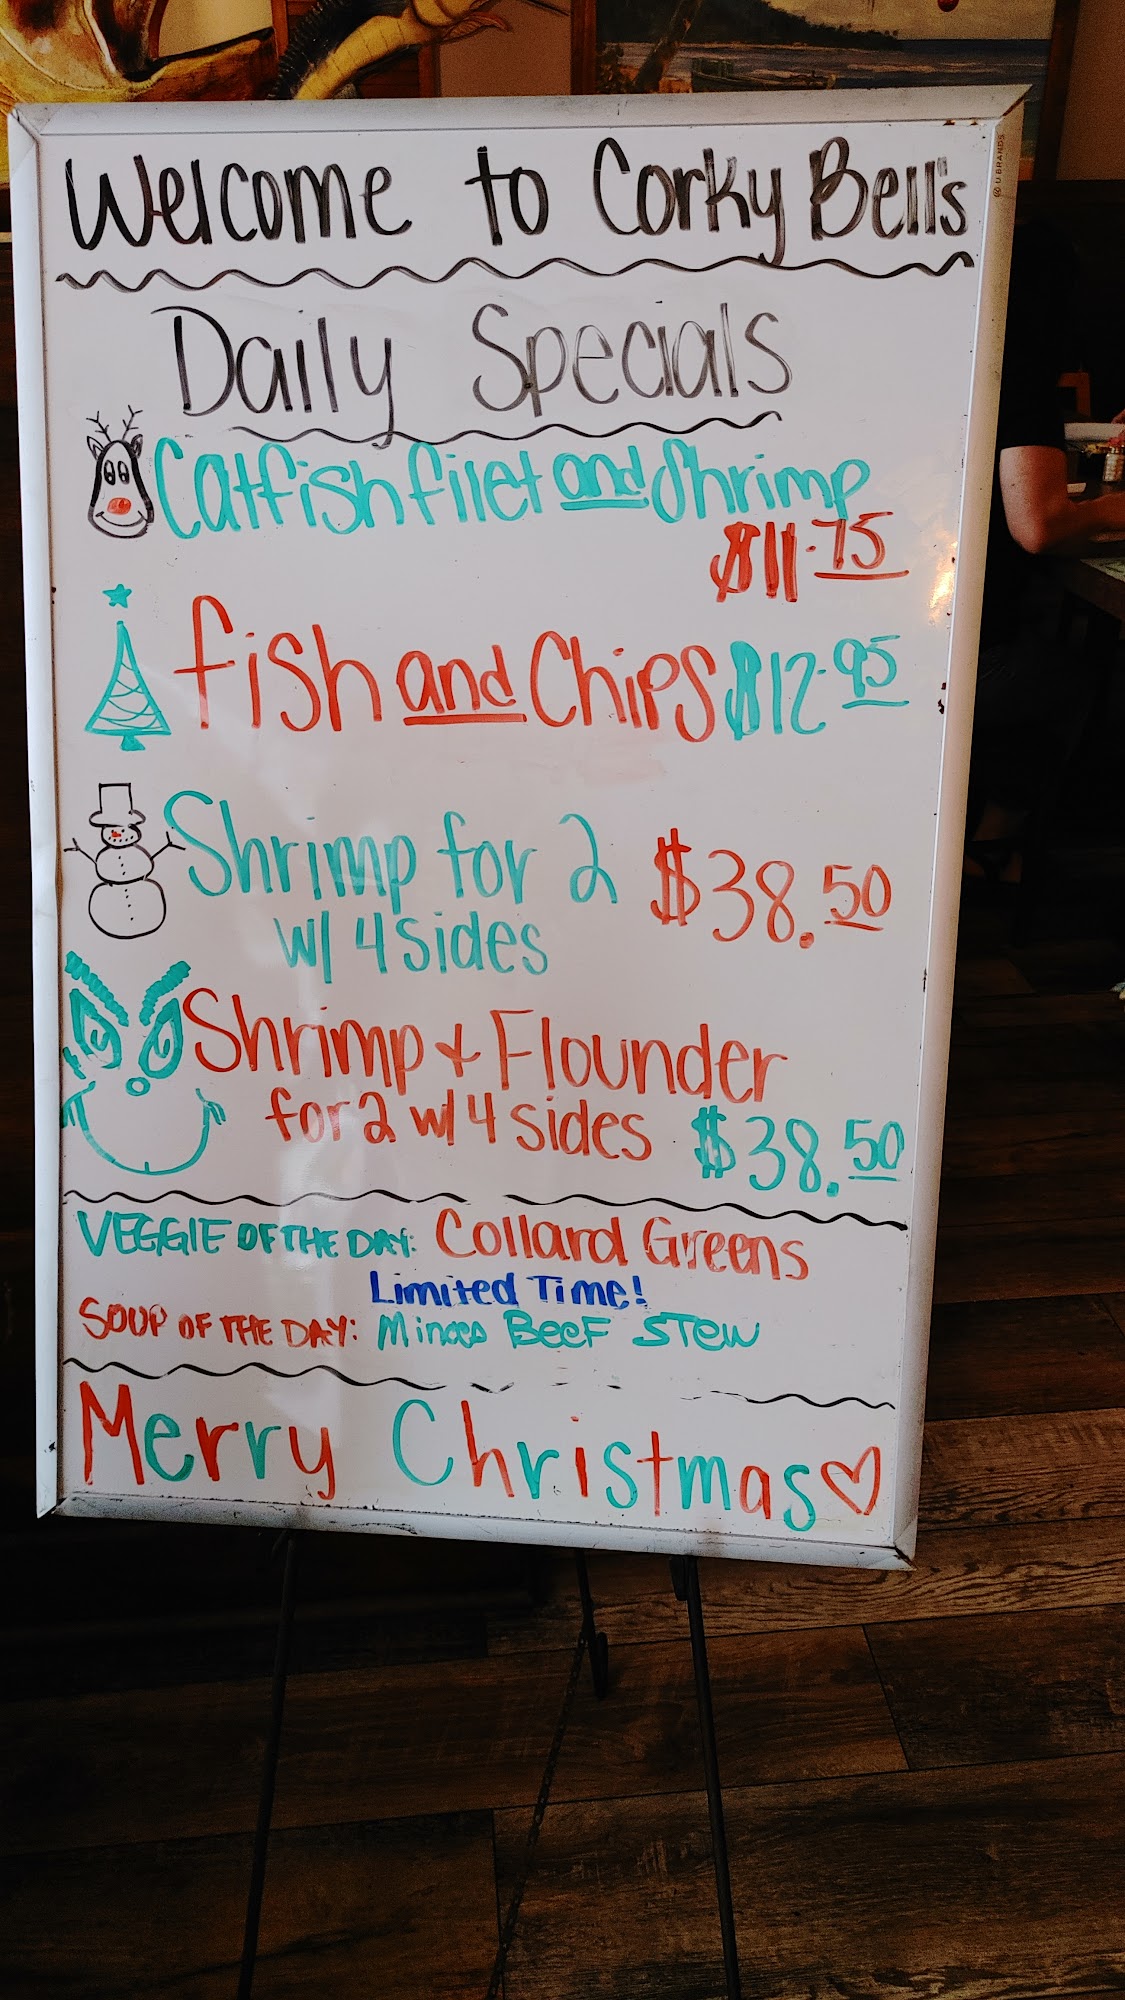 Welcome to Corky Bell's
Daily Specials
Catfish filet and Shrimp
$11.75
fish and Chips $12.95
Shrimp for 2 $38.50
w/ 4 sides
Shrimp + Flounder
for 2 w/ 4 sides $38.50
VEGGIE OF THE DAY: Collard Greens
Limited Time!
SOUP OF THE DAY: Minced Beef Stew
Merry Christmas
U BRANDS